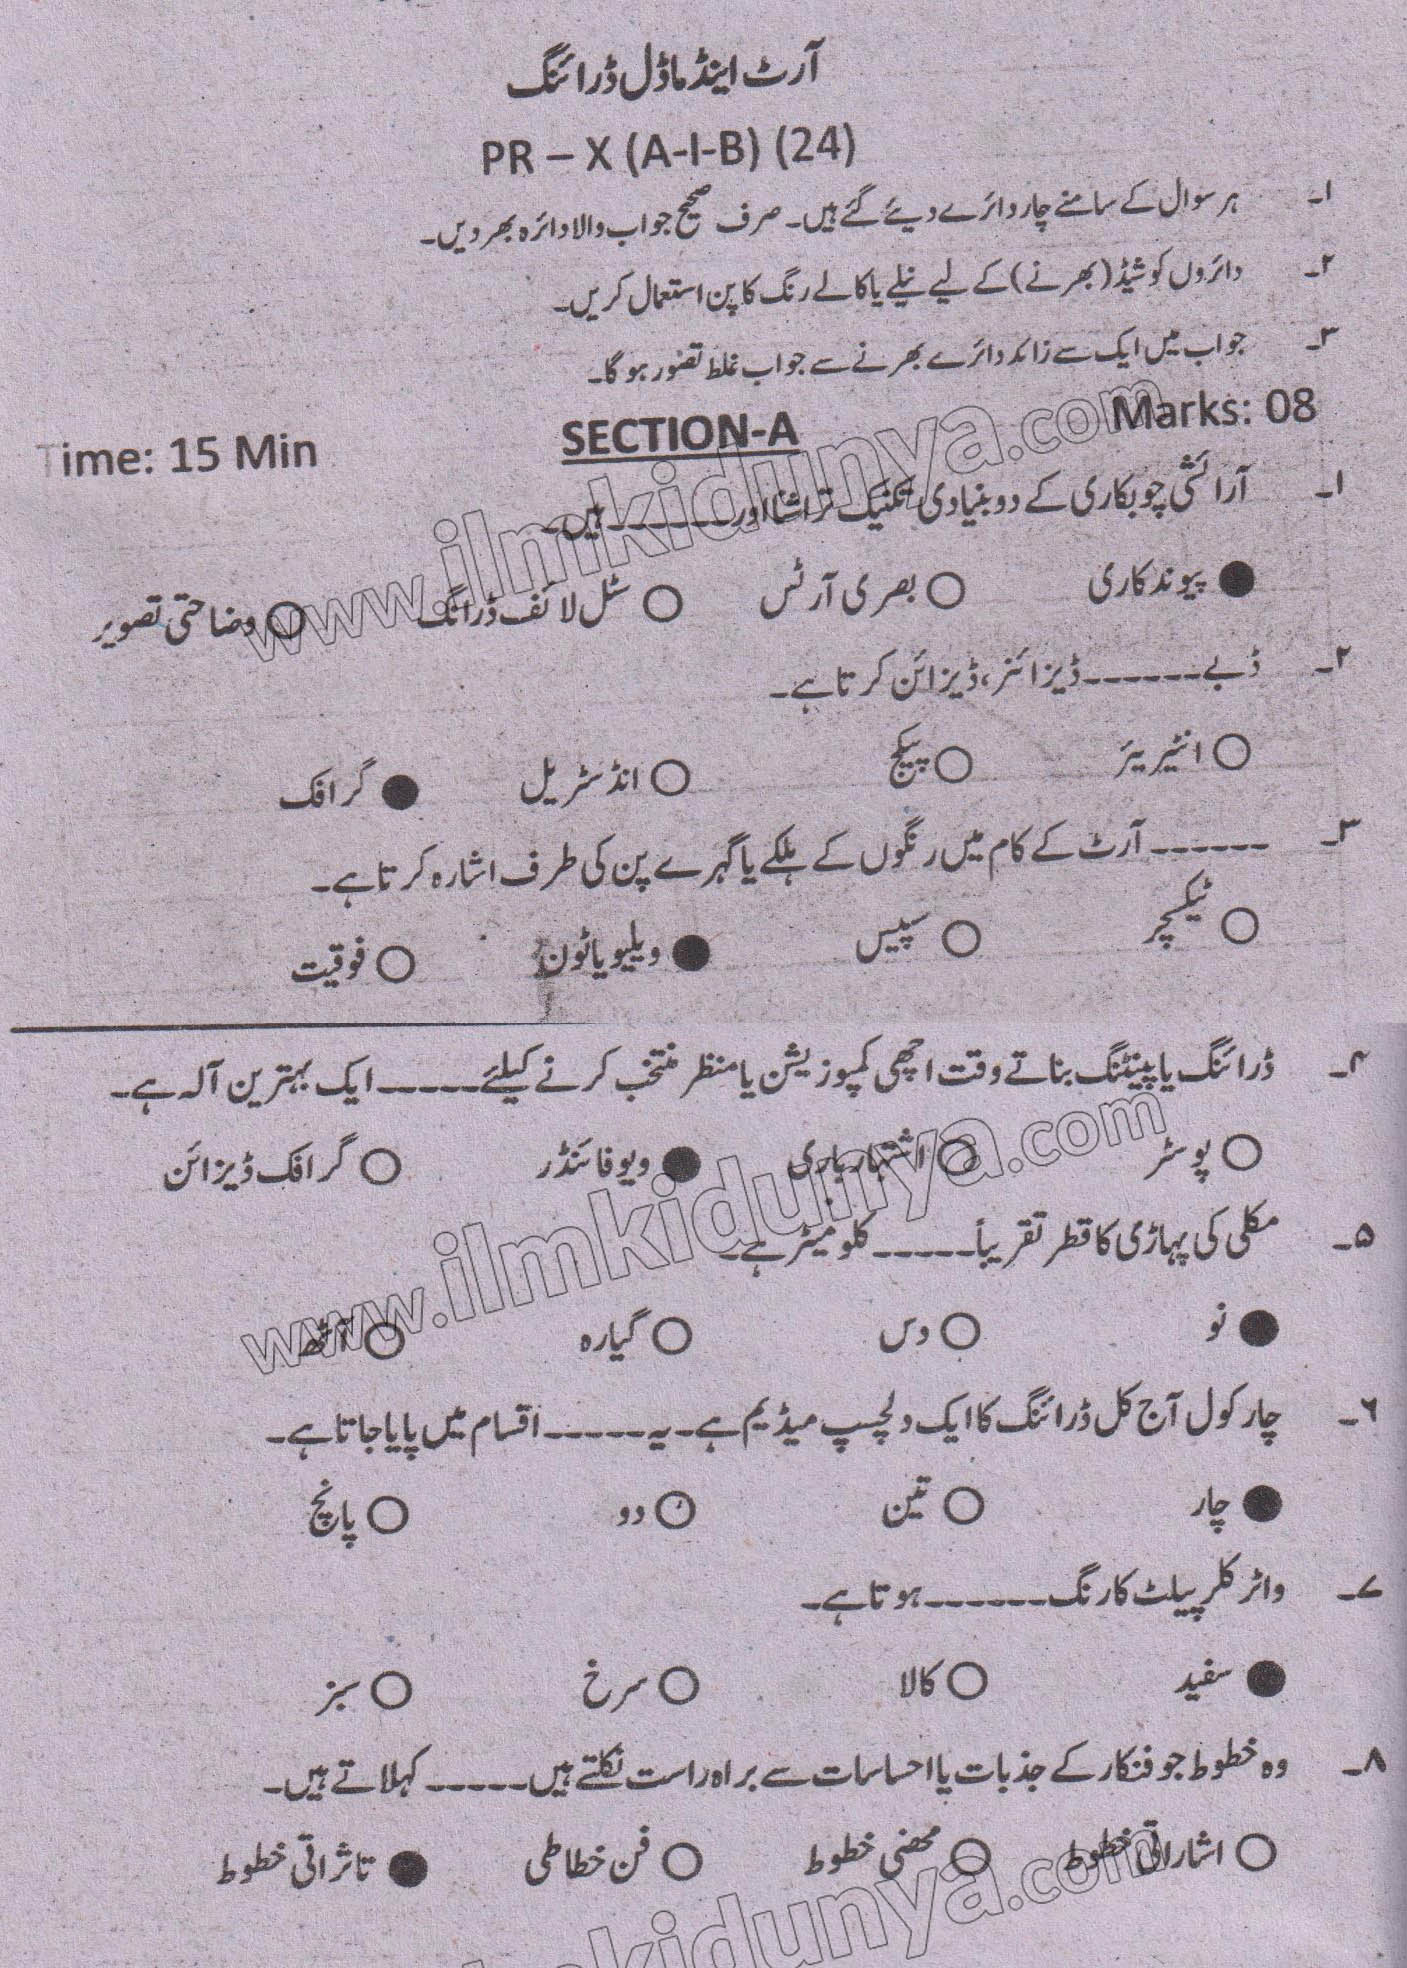 آرٹ اینڈ ماڈل ڈرائنگ
PR – X (A-I-B) (24)
۱۔ ہر سوال کے سامنے چار دائرے دیئے گئے ہیں۔ صرف صحیح جواب والا دائرہ بھر دیں۔
۲۔ دائروں کو شیڈ (بھرنے) کے لیے نیلے یا کالے رنگ کا پن استعمال کریں۔
۳۔ جواب میں ایک سے زائد دائرے بھرنے سے جواب غلط تصور ہوگا۔
Time: 15 Min SECTION-A Marks: 08
۱۔ آرائشی چوبکاری کے دو بنیادی تکنیک تراشنا اور ------ ہیں۔
● پیوندکاری ○ بصری آرٹس ○ سٹل لائف ڈرائنگ ○ وضاحتی تصویر
۲۔ ڈبے ------ ڈیزائنر، ڈیزائن کرتا ہے۔
○ انٹیریئر ○ پیکج ○ انڈسٹریل ● گرافک
۳۔ ------ آرٹ کے کام میں رنگوں کے ہلکے یا گہرے پن کی طرف اشارہ کرتا ہے۔
○ ٹیکسچر ○ سپیس ● ویلیو یا ٹون ○ فوقیت
۴۔ ڈرائنگ یا پینٹنگ بناتے وقت اچھی کمپوزیشن یا منظر منتخب کرنے کیلئے ----- ایک بہترین آلہ ہے۔
○ پوسٹر ○ اشتہار بازی ● ویو فائنڈر ○ گرافک ڈیزائن
۵۔ مکلی کی پہاڑی کا قطر تقریباً ----- کلو میٹر ہے۔
● نو ○ دس ○ گیارہ ○ آٹھ
۶۔ چارکول آج کل ڈرائنگ کا ایک دلچسپ میڈیم ہے۔ یہ ----- اقسام میں پایا جاتا ہے۔
● چار ○ تین ○ دو ○ پانچ
۷۔ واٹر کلر پیلٹ کا رنگ ------ ہوتا ہے۔
● سفید ○ کالا ○ سرخ ○ سبز
۸۔ وہ خطوط جو فنکار کے جذبات یا احساسات سے براہ راست نکلتے ہیں ----- کہلاتے ہیں۔
○ اشاراتی خطوط ○ محضی خطوط ○ فن خطاطی ● تاثراتی خطوط
www.ilmkidunya.com
www.ilmkidunya.com
mkidunya.com